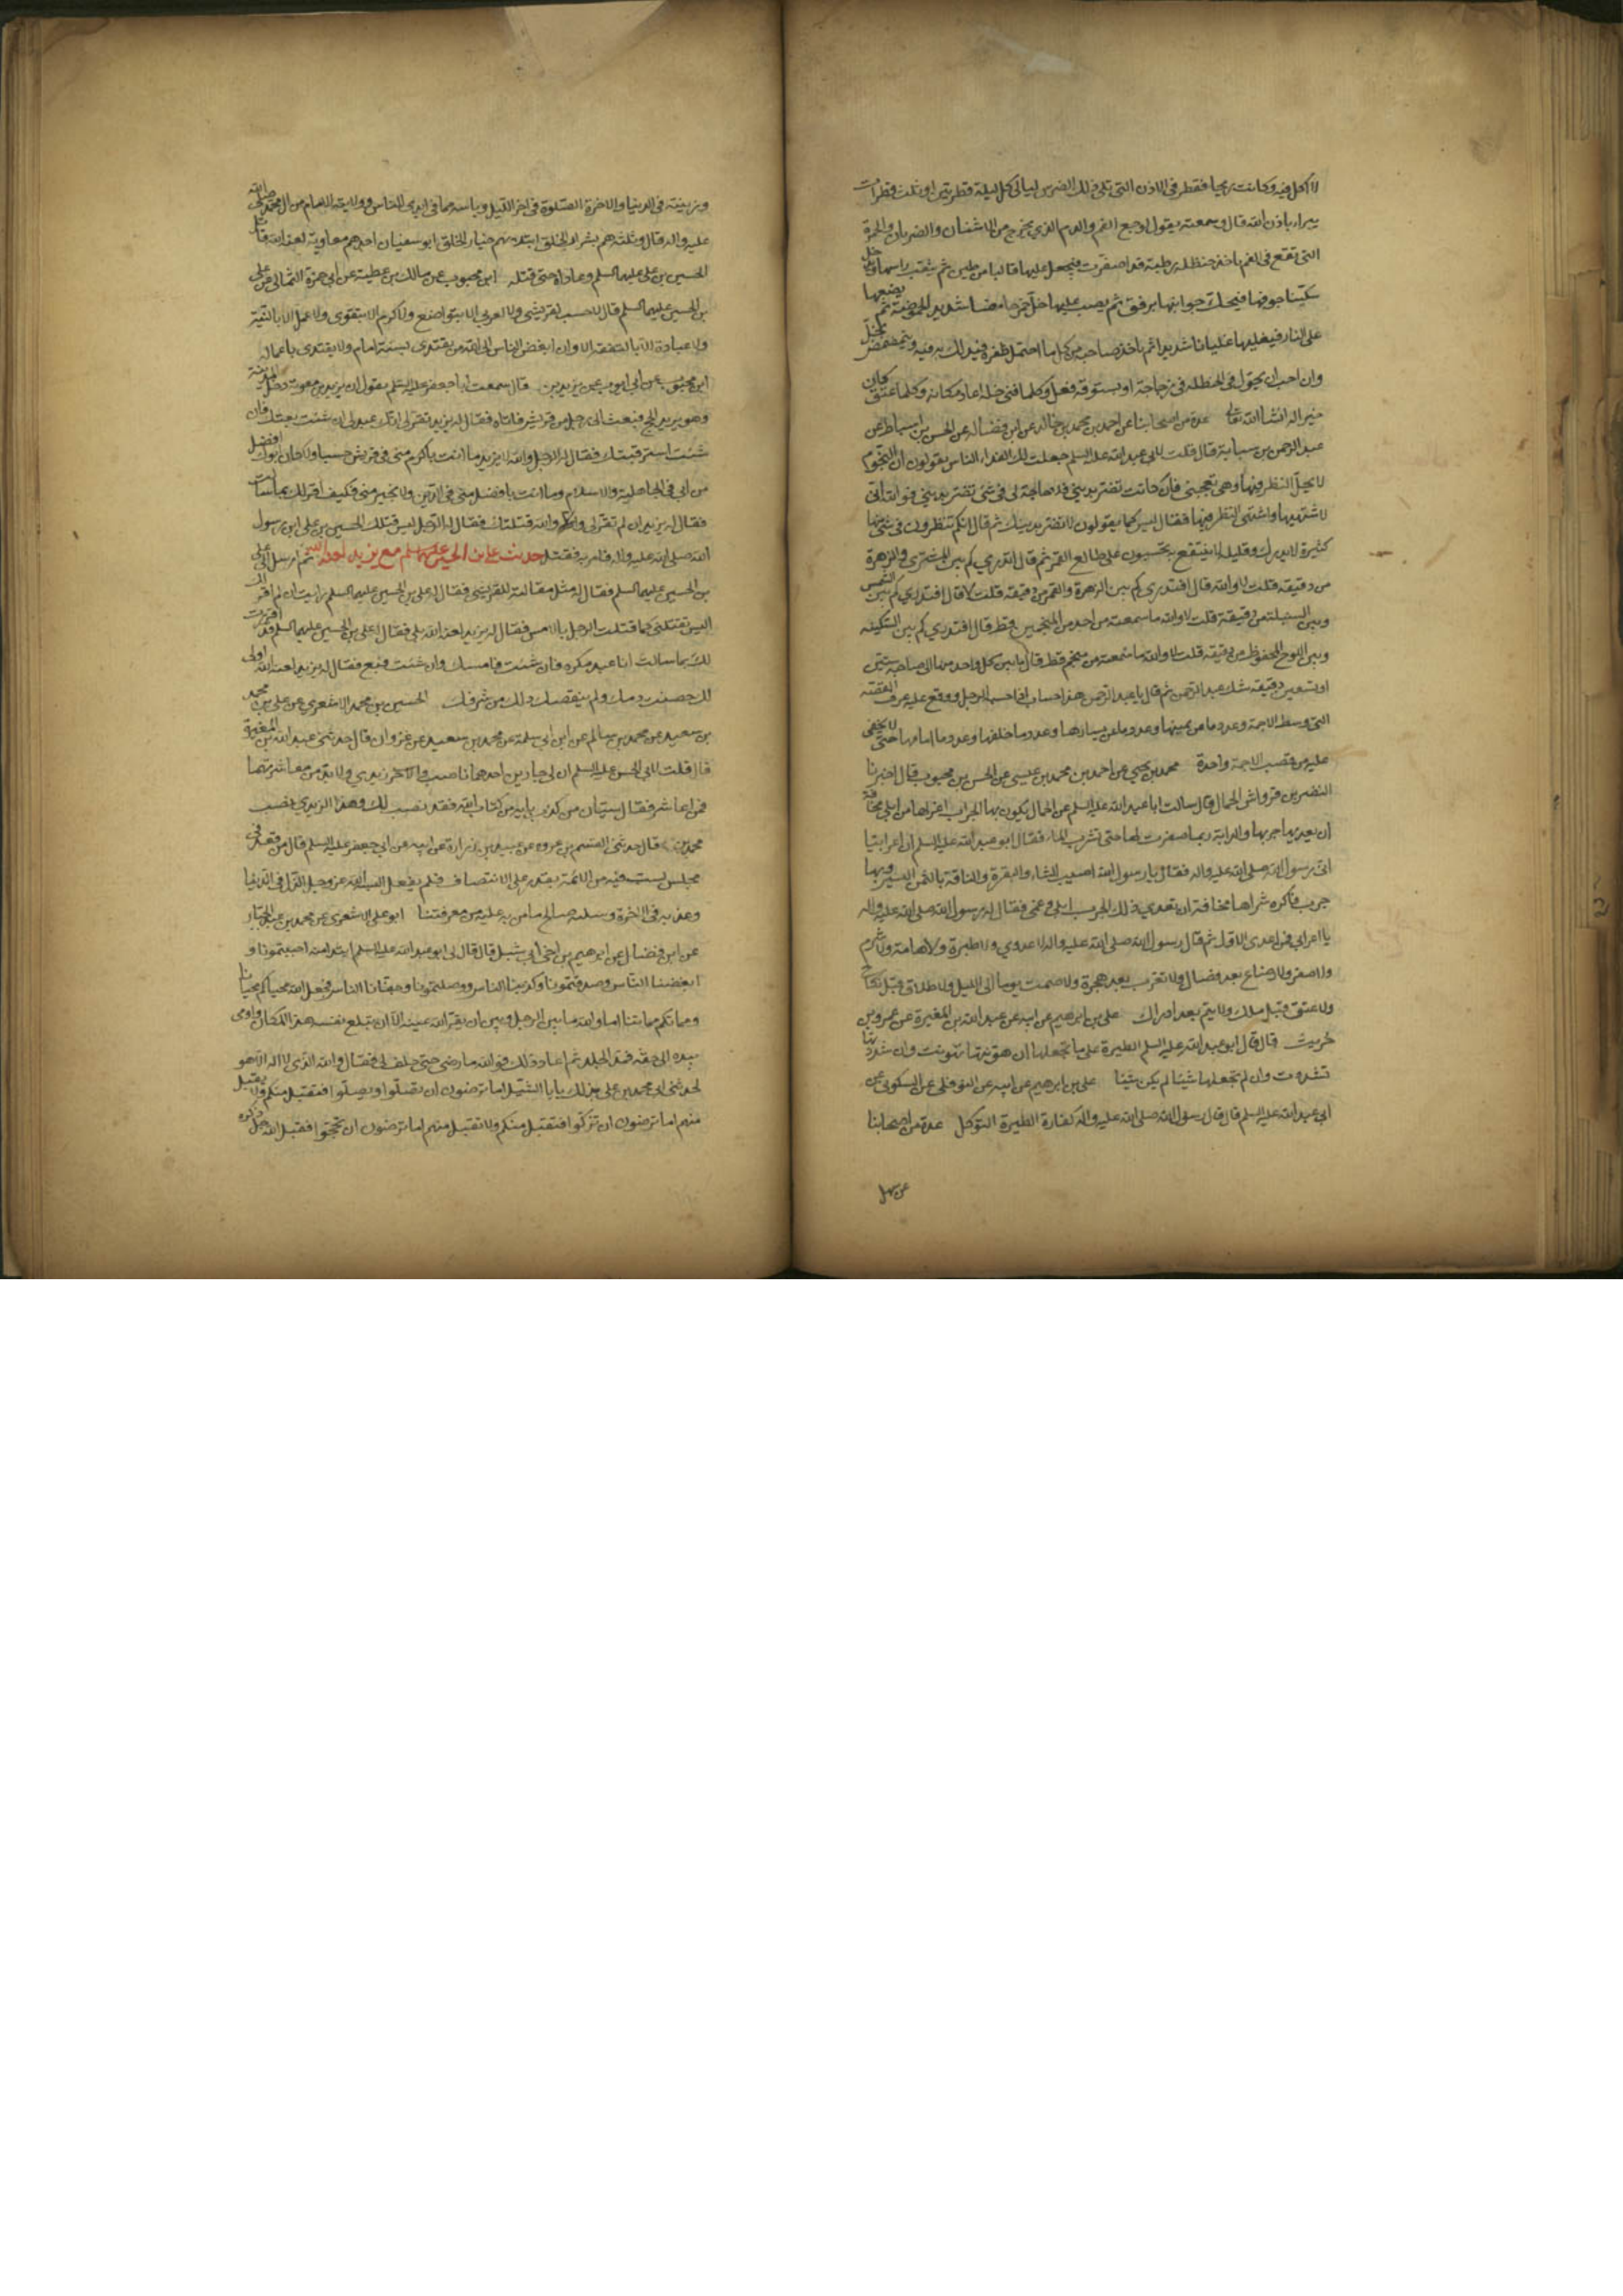 لا اكل فيه وكانت ريحا فقطر في الاذن التي تلي ذلك الضرس ليالي كل ليلة قطرتين او ثلث قطرات
يبراء باذن الله قال وسمعته يقول لوجع الفم والدم الذي يخرج من الاسنان والضربان والحمرة
التي تقع في الفم ياخذ حنظلة رطبة قد اصفرت فيجعل عليها قالبا من طين ثم يثقب راسها ويدخل
سكينا جوفها فيحك جوانبها برفق ثم يصب عليها خل خمر حامضا شديد الحموضة ثم يضعها
على النار فيغليها غليانا شديدا ثم ياخذ صاحبه منه كلما احتمل ظفره فيدلك به فيه ويتمضمض بخل
وان احب ان يحول ما في الحنظلة في زجاجة او بستوقة فعل وكلما فنى خله اعاد مكانه وكلما عتق كان
خيرا له انشا الله تعا عدة من اصحابنا عن احمد بن محمد بن خالد عن ابن فضال عن الحسن بن اسباط عن
عبد الرحمن بن سيابة قال قلت لابي عبد الله عليه السلم جعلت لك الفداء الناس يقولون ان النجوم
لا يحل النظر فيها وهي تعجبني فان كانت تضر بديني فلا حاجة لي في شئ تضر بديني فوالله اني
لاشتهيها واشتهي النظر فيها فقال ليس كما يقولون لا تضر بدينك ثم قال انكم تنظرون في شئ منها
كثيرة لا يدرك وقليله لا ينتفع به تحسبون على طالع القمر ثم قال اتدري كم بين المشتري والزهرة
من دقيقة قلت لا والله قال افتدري كم بين الزهرة والقمر من دقيقة قلت لا قال افتدري كم بين الشمس
وبين السنبلة من دقيقة قلت لا والله ما سمعته من احد من المنجمين قط قال افتدري كم بين السكينة
وبين اللوح المحفوظ من دقيقة قلت لا والله ما سمعته من منجم قط قال ما بين كل واحد منهما الى صاحبه ستين
او تسعين دقيقة شك عبد الرحمن ثم قال يا عبد الرحمن هذا حساب اذا حسبه الرجل ووقع عليه عرف القصبة
التي وسط الاجمة وعدد ما عن يمينها وعدد ما عن يسارها وعدد ما خلفها وعدد ما امامها حتى لا يخفى
عليه من قصب الاجمة واحدة محمد بن يحيى عن احمد بن محمد بن عيسى عن الحسن بن محبوب قال اخبرنا
النضر بن قرواش الجمال قال سالت ابا عبد الله عليه السلم عن الجمال يكون بها الجرب اعزلها من ابلي مخافة
ان يعديها جربها والدابة ربما صفرت لها حتى تشرب الماء فقال ابو عبد الله عليه السلم ان اعرابيا
اتى رسول الله صلى الله عليه واله فقال يا رسول الله اصيب الشاء والبقرة والناقة بالثمن اليسير وبها
جرب فاكره شراها مخافة ان يعدي ذلك الجرب ابلي وغنمي فقال له رسول الله صلى الله عليه واله
يا اعرابي فمن اعدى الاول ثم قال رسول الله صلى الله عليه واله لا عدوي ولا طيرة ولا هامة ولا شوم
ولا صفر ولا رضاع بعد فصال ولا تعرب بعد هجرة ولا صمت يوما الى الليل ولا طلاق قبل نكاح
ولا عتق قبل ملك ولا يتم بعد ادراك على بن ابرهيم عن ابيه عن عبد الله بن المغيرة عن عمرو بن
حريث قال قال ابو عبد الله عليه السلم الطيرة على ما تجعلها ان هونتها تهونت وان شددتها
تشددت وان لم تجعلها شيئا لم يكن شيئا على بن ابرهيم عن ابيه عن النوفلي عن السكوني عن
ابي عبد الله عليه السلم قال قال رسول الله صلى الله عليه واله كفارة الطيرة التوكل عدة من اصحابنا
عن سهل
وزينته في الدنيا والاخرة الصلوة في اخر الليل وياسه مما في ايدي الناس وولايته الامام من ال محمد صلى الله
عليه واله قال وثلثة هم شرار الخلق ابتلى بهم خيار الخلق ابو سفيان احدهم معاوية لعنه الله قاتل
الحسين بن على عليهما السلم وعاداه حتى قتله ابن محبوب عن مالك بن عطية عن ابي حمزة الثمالي عن على
بن الحسين عليهما السلم قال لا حسب لقرشي ولا لعربي الا بتواضع ولا كرم الا بتقوى ولا عمل الا بالنية
ولا عبادة الا بالتفقه الا وان ابغض الناس الى الله من يقتدى بسنة امام ولا يقتدى باعماله
ابن محبوب عن ابي ايوب عن بريد بن قال سمعت ابا جعفر عليه السلم يقول ان يزيد بن معوية دخل المدينة
وهو يريد الحج فبعث الى رجل من قريش فاتاه فقال له يزيد تقر لى انك عبد لى ان شئت بعتك وان
شئت استرقيتك فقال له الرجل والله يا يزيد ما انت باكرم منى في قريش حسبا ولا كان ابوك افضل
من ابي في الجاهلية والاسلام وما انت بافضل مني في الدين ولا بخير مني فكيف اقر لك بما سالت
فقال له يزيد ان لم تقر لي والله قتلتك فقال له الرجل ليس قتلك الحسين بن على ابن رسول
الله صلى الله عليه واله فامر به فقتل حديث على بن الحسين عليهما السلم مع يزيد لعنه الله ثم ارسل الى على
بن الحسين عليهما السلم فقال له مثل مقالته للقرشي فقال له على بن الحسين عليهما السلم ارايت ان لم اقر لك
اليس تقتلني كما قتلت الرجل بالامس فقال له يزيد لعنه الله بلى فقال له على بن الحسين عليهما السلم قد اقررت
لك بما سالت انا عبد مكره فان شئت فامسك وان شئت فبع فقال له يزيد لعنه الله اولى
لك حصنت دمك ولم ينقصك ذلك من شرفك الحسين بن محمد الاشعري عن على بن محمد
بن سعيد عن محمد بن سالم عن ابن ابي سلمة عن محمد بن سعيد عن غزوان قال حدثني عبد الله بن المغيرة
قال قلت لابي الحسن عليه السلم ان لي جارين احدهما ناصب والاخر زيدي ولا بد من معاشرتهما
فمن اعاشر فقال سيان من كذب باية من كتاب الله فقد نصب لك وهذا الزيدي نصب
محمد بن قال حدثني القسم بن عروة عن عبيد بن زرارة عن ابيه عن ابي جعفر عليه السلم قال من قعد في
مجلس يسب فيه من الائمة يقدر على الانتصاف فلم يفعل البسه الله عز وجل الذل في الدنيا
وعذبه في الاخرة وسلبه صالح ما من به عليه من معرفتنا ابو على الاشعرى عن محمد بن عبد الجبار
عن ابن فضال عن ابرهيم بن اخي ابي شبل قال قال لى ابو عبد الله عليه السلم ابتدا منه احببتمونا و
ابغضنا الناس وصدقتمونا وكذبنا الناس ووصلتمونا وجفانا الناس فجعل الله محياكم محيانا
ومماتكم مماتنا اما والله ما بين الرجل وبين ان يقر الله عينه الا ان تبلغ نفسه هذا المكان واومى
بيده الى حلقه فمد الجلدة ثم اعاد ذلك فوالله ما رضى حتى حلف لى فقال والله الذى لا اله الا هو
لحدثني ابي محمد بن على بذلك يا با الشبل اما ترضون ان تصلوا ويصلوا فتقبل منكم ولا يقبل
منهم اما ترضون ان تزكوا فتقبل منكم ولا تقبل منهم اما ترضون ان تحجوا فيقبل الله جل ذكره